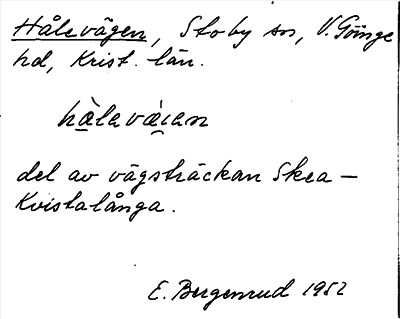 Hålevägen, Stoby sn, V. Göinge
hd, Krist. län.
hàlavá̤i̯an
del av vägsträckan Skea –
Kvistalånga.
E. Bergenrud 1952